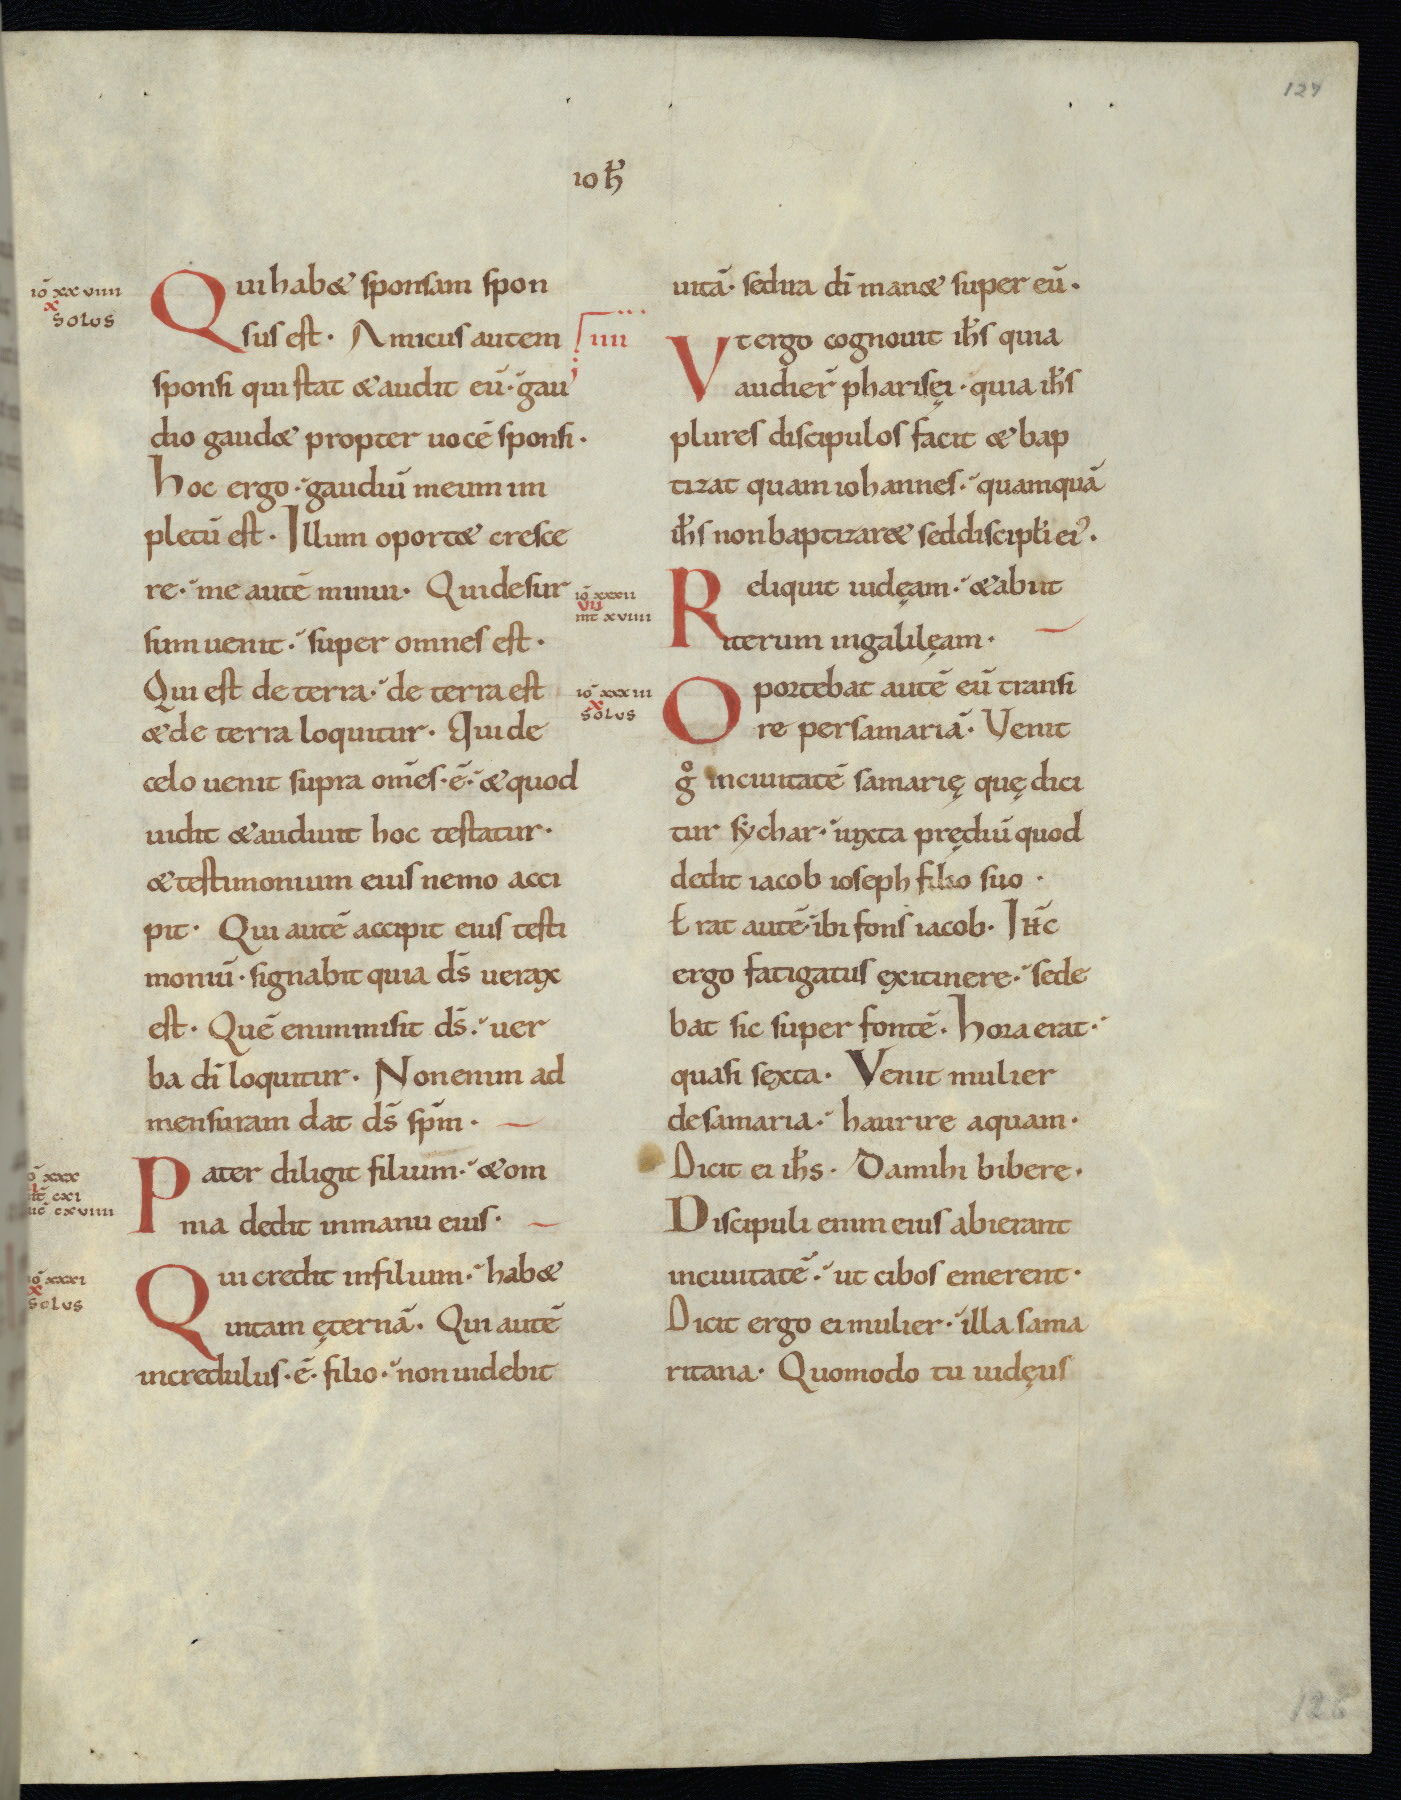 127
ioh̄
iō xxviiii
x
solus
Qui hab& sponsam spon
sus est· Amicus autem
sponsi qui stat & audit eū· gau
dio gaud& propter uocē sponsi·
hoc ergo· gaudiū meum im
pletū est· Illum oport& cresce
re· me autē minui· Qui desur
sum uenit· super omnes est·
Qui est de terra· de terra est
& de terra loquitur· Qui de
celo uenit supra om̄es·ē· & quod
uidit & audiuit hoc testatur·
& testimonium eius nemo acci
pit· Qui autē accipit eius testi
moniū· signabit quia d̄s uerax
est· Quē enim misit d̄s· uer
ba dī loquitur· Non enim ad
mensuram dat d̄s sp̄m·
iō xxx
mt̄ cxi
luc̄ cxviiii
Pater diligit filium· & om
nia dedit in manu eius·
iō xxxi
x
solus
Qui credit in filium· hab&
uitam ęternā· Qui autē
incredulus·ē· filio· non uidebit
uitā· sed ira dī man& super eū·
iiii
Vt ergo cognouit ih̄s quia
audier̄ pharisęi· quia ih̄s
plures discipulos facit & bap
tizat quam iohannes· quamquā
ih̄s non baptizar& sed discipl̄i ei᾽·
iō xxxii
vii
mt̄ xviiii
Reliquit iudęam· & abiit
iterum in galilęam·
iō xxxiii
x
solus
Oportebat autē eū transi
re per samariā· Venit
g̊ in ciuitatē samarię quę dici
tur sẏchar· iuxta prędiū quod
dedit iacob ioseph filio suo·
Erat autē ibi fons iacob· Ih̄c
ergo fatigatus ex itinere· sede
bat sic super fontē· hora erat·
quasi sexta· Venit mulier
de samaria· haurire aquam·
Dicit ei ih̄s· Da mihi bibere·
Discipuli enim eius abierant
in ciuitatē· ut cibos emerent·
Dicit ergo ei mulier· illa sama
ritana· Quomodo tu iudęus
126